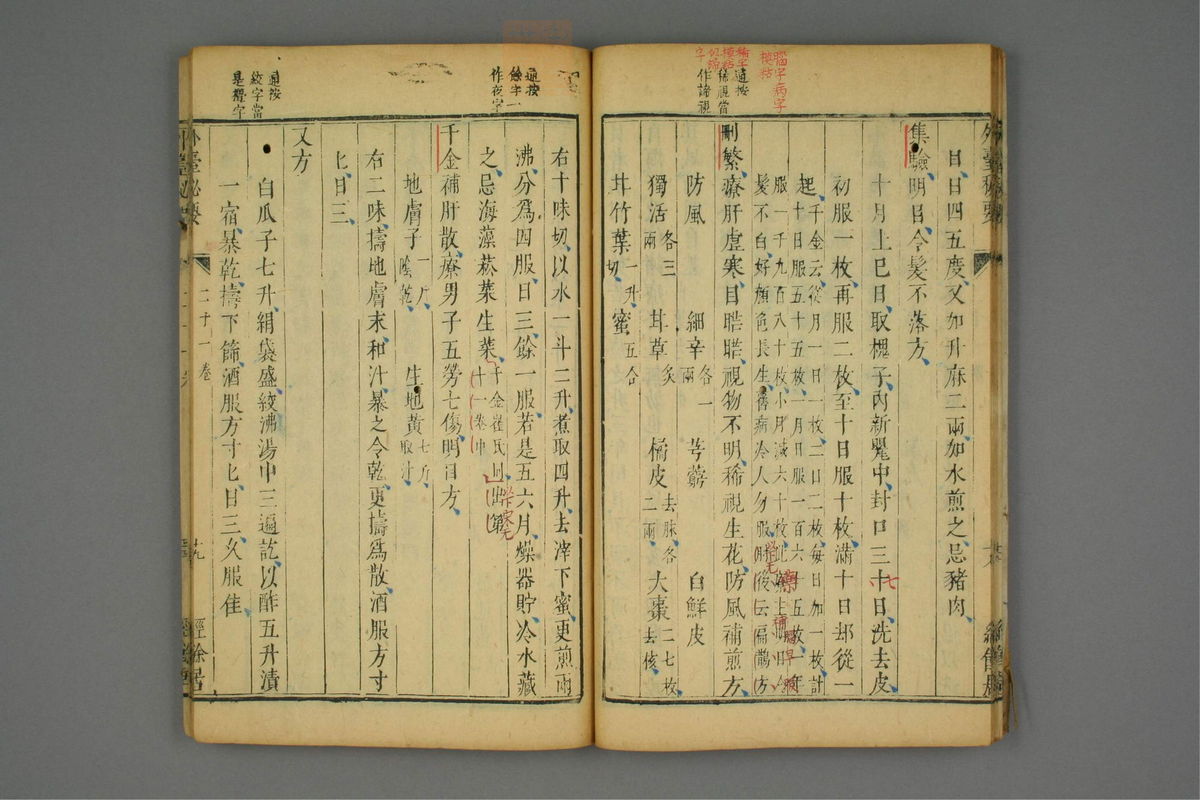 日日四五度又加升麻二兩加水煎之忌豬肉
集驗明目令髮不落方
十月上巳日取槐子內新甖中封口三十日洗去皮
初服一枚再服二枚至十日服十枚滿十日却從一
起千金云從月一日一枚二日二枚每日加一枚計
十日服五十五枚一月日服一百六十五枚一年
服一千九百八十枚小月減六十枚此藥主補腦早服
髮不白好顏色長生益病冷人勿服肘後云扁鵲方
刪繁療肝虛寒目䀮䀮視物不明稀視生花防風補煎方
防風 細辛各一兩 芎藭 白鮮皮
獨活各三兩 甘草炙 橘皮去脉各二兩 大棗二七枚去核
甘竹葉一升切 蜜五合
右十味切以水一斗二升煮取四升去滓下蜜更煎兩
沸分爲四服日三餘一服若是五六月燥器貯冷水藏
之忌海藻菘菜生菜千金崔氏同出第十一卷中
千金補肝散療男子五勞七傷明目方
地膚子一斤陰乾 生地黃七斤取汁
右二味擣地膚末和汁暴之令乾更擣爲散酒服方寸
匕日三
又方
白瓜子七升絹袋盛絞沸湯中三遍訖以酢五升漬
一宿暴乾擣下篩酒服方寸匕日三久服佳
外臺秘要
二十一卷
十九
經餘居
腦字病字
模糊
補字
模糊
通按
稀視當
作諦視
通按
餘字一
作夜字
通按
絞字當
是攪字